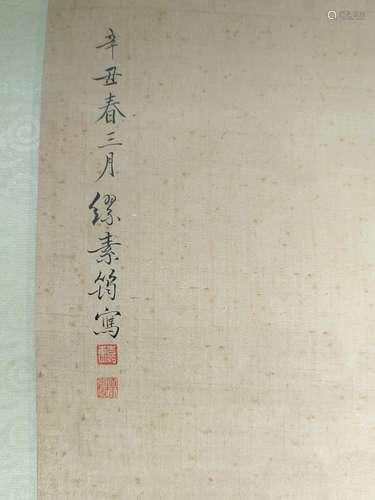 辛丑春三月繆素筠寫